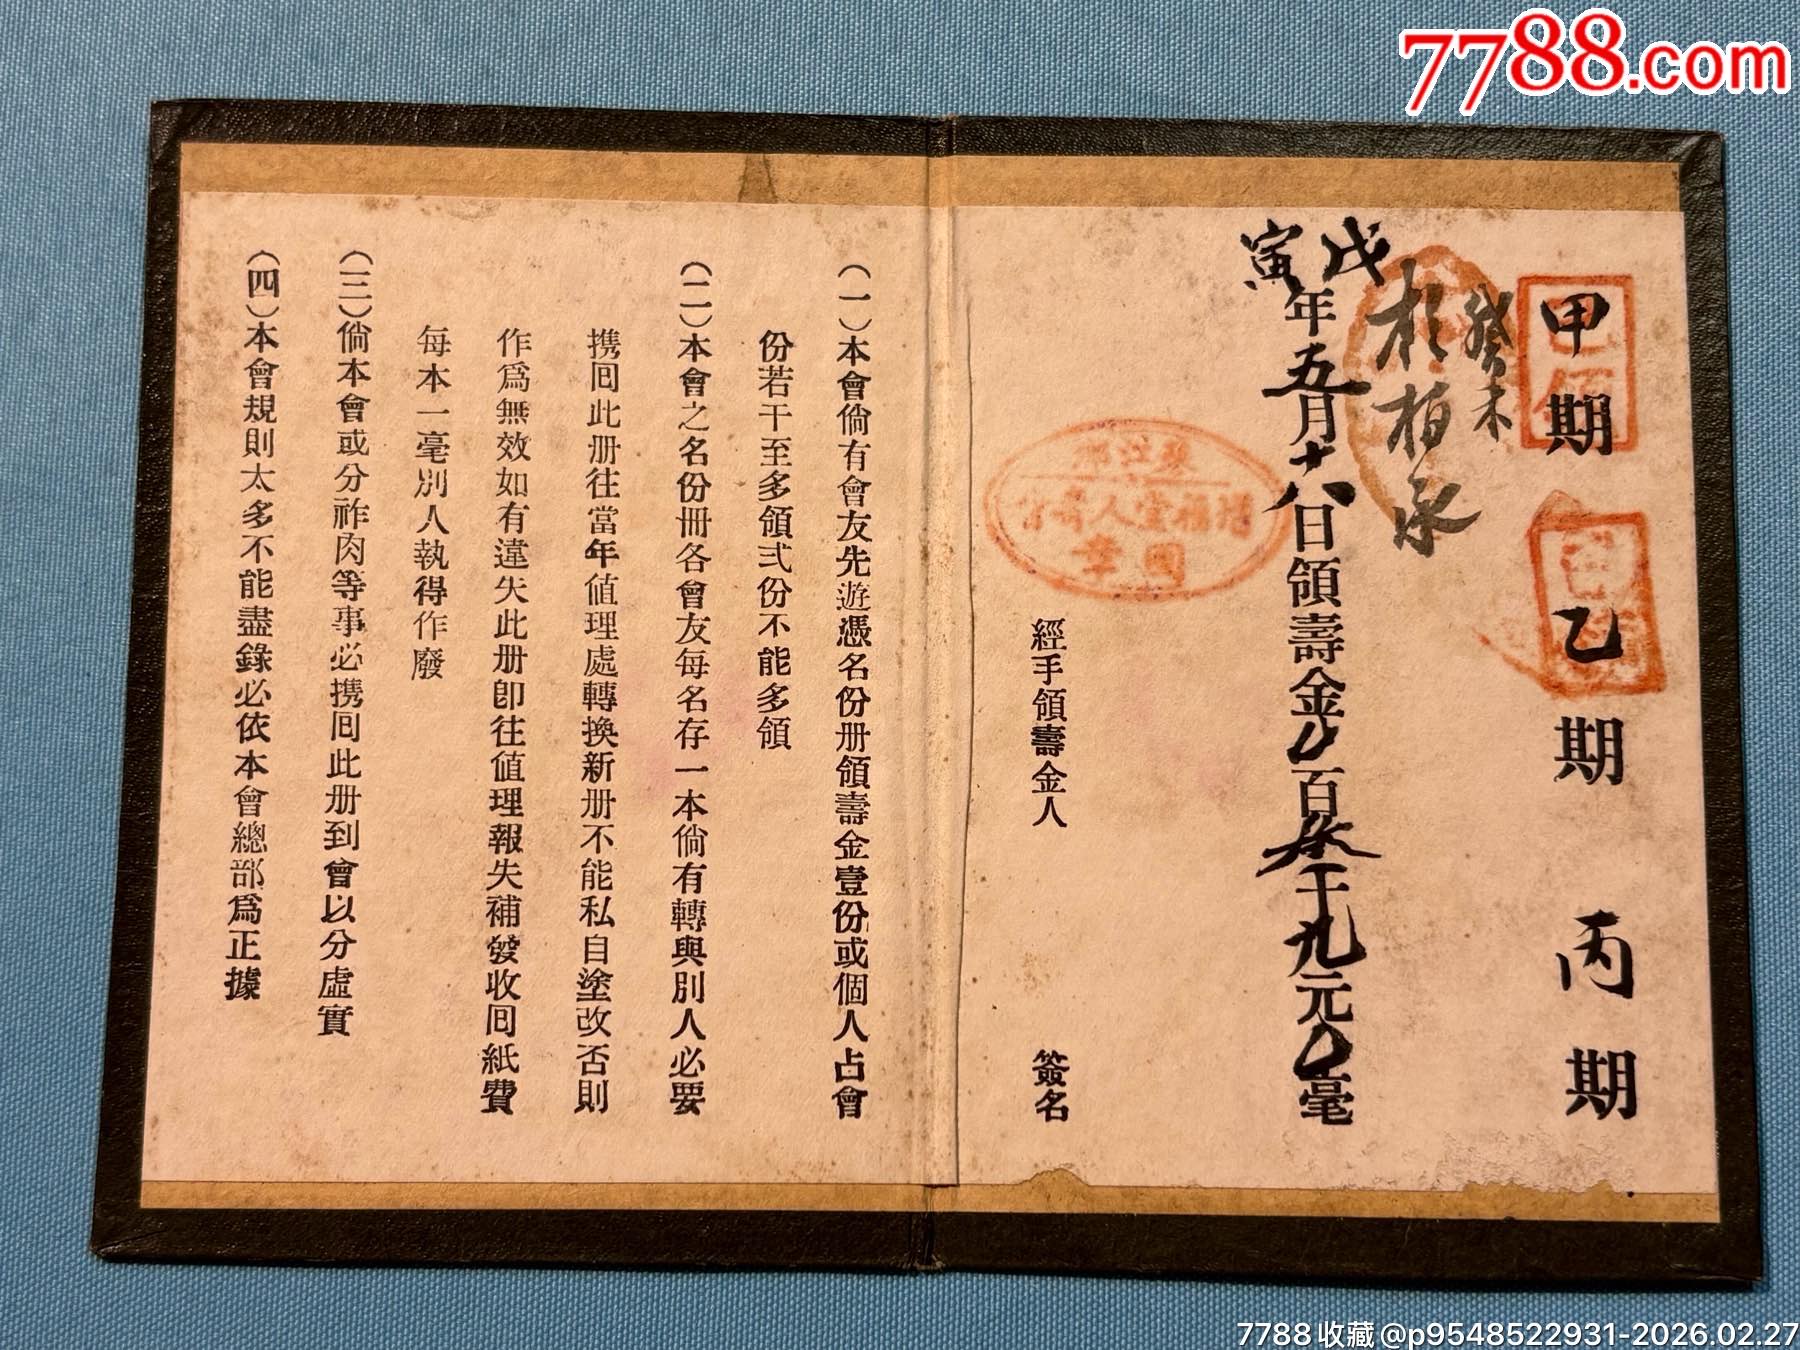 7788.com
甲期 乙期 丙期
癸未
戊寅年五月十八日領壽金0百叁十九元0毫
經手領壽金人 簽名
(一)本會倘有會友先遊憑名份册領壽金壹份或個人占會
份若干至多領弍份不能多領
(二)本會之名份冊各會友每名存一本倘有轉與別人必要
携囘此册往當年值理處轉換新册不能私自塗改否則
作爲無效如有違失此册卽往值理報失補發收囘紙費
每本一毫別人執得作廢
(三)倘本會或分祚肉等事必携囘此册到會以分虛實
(四)本會規則太多不能盡錄必依本會總部爲正據
7788收藏@p9548522931-2026.02.27